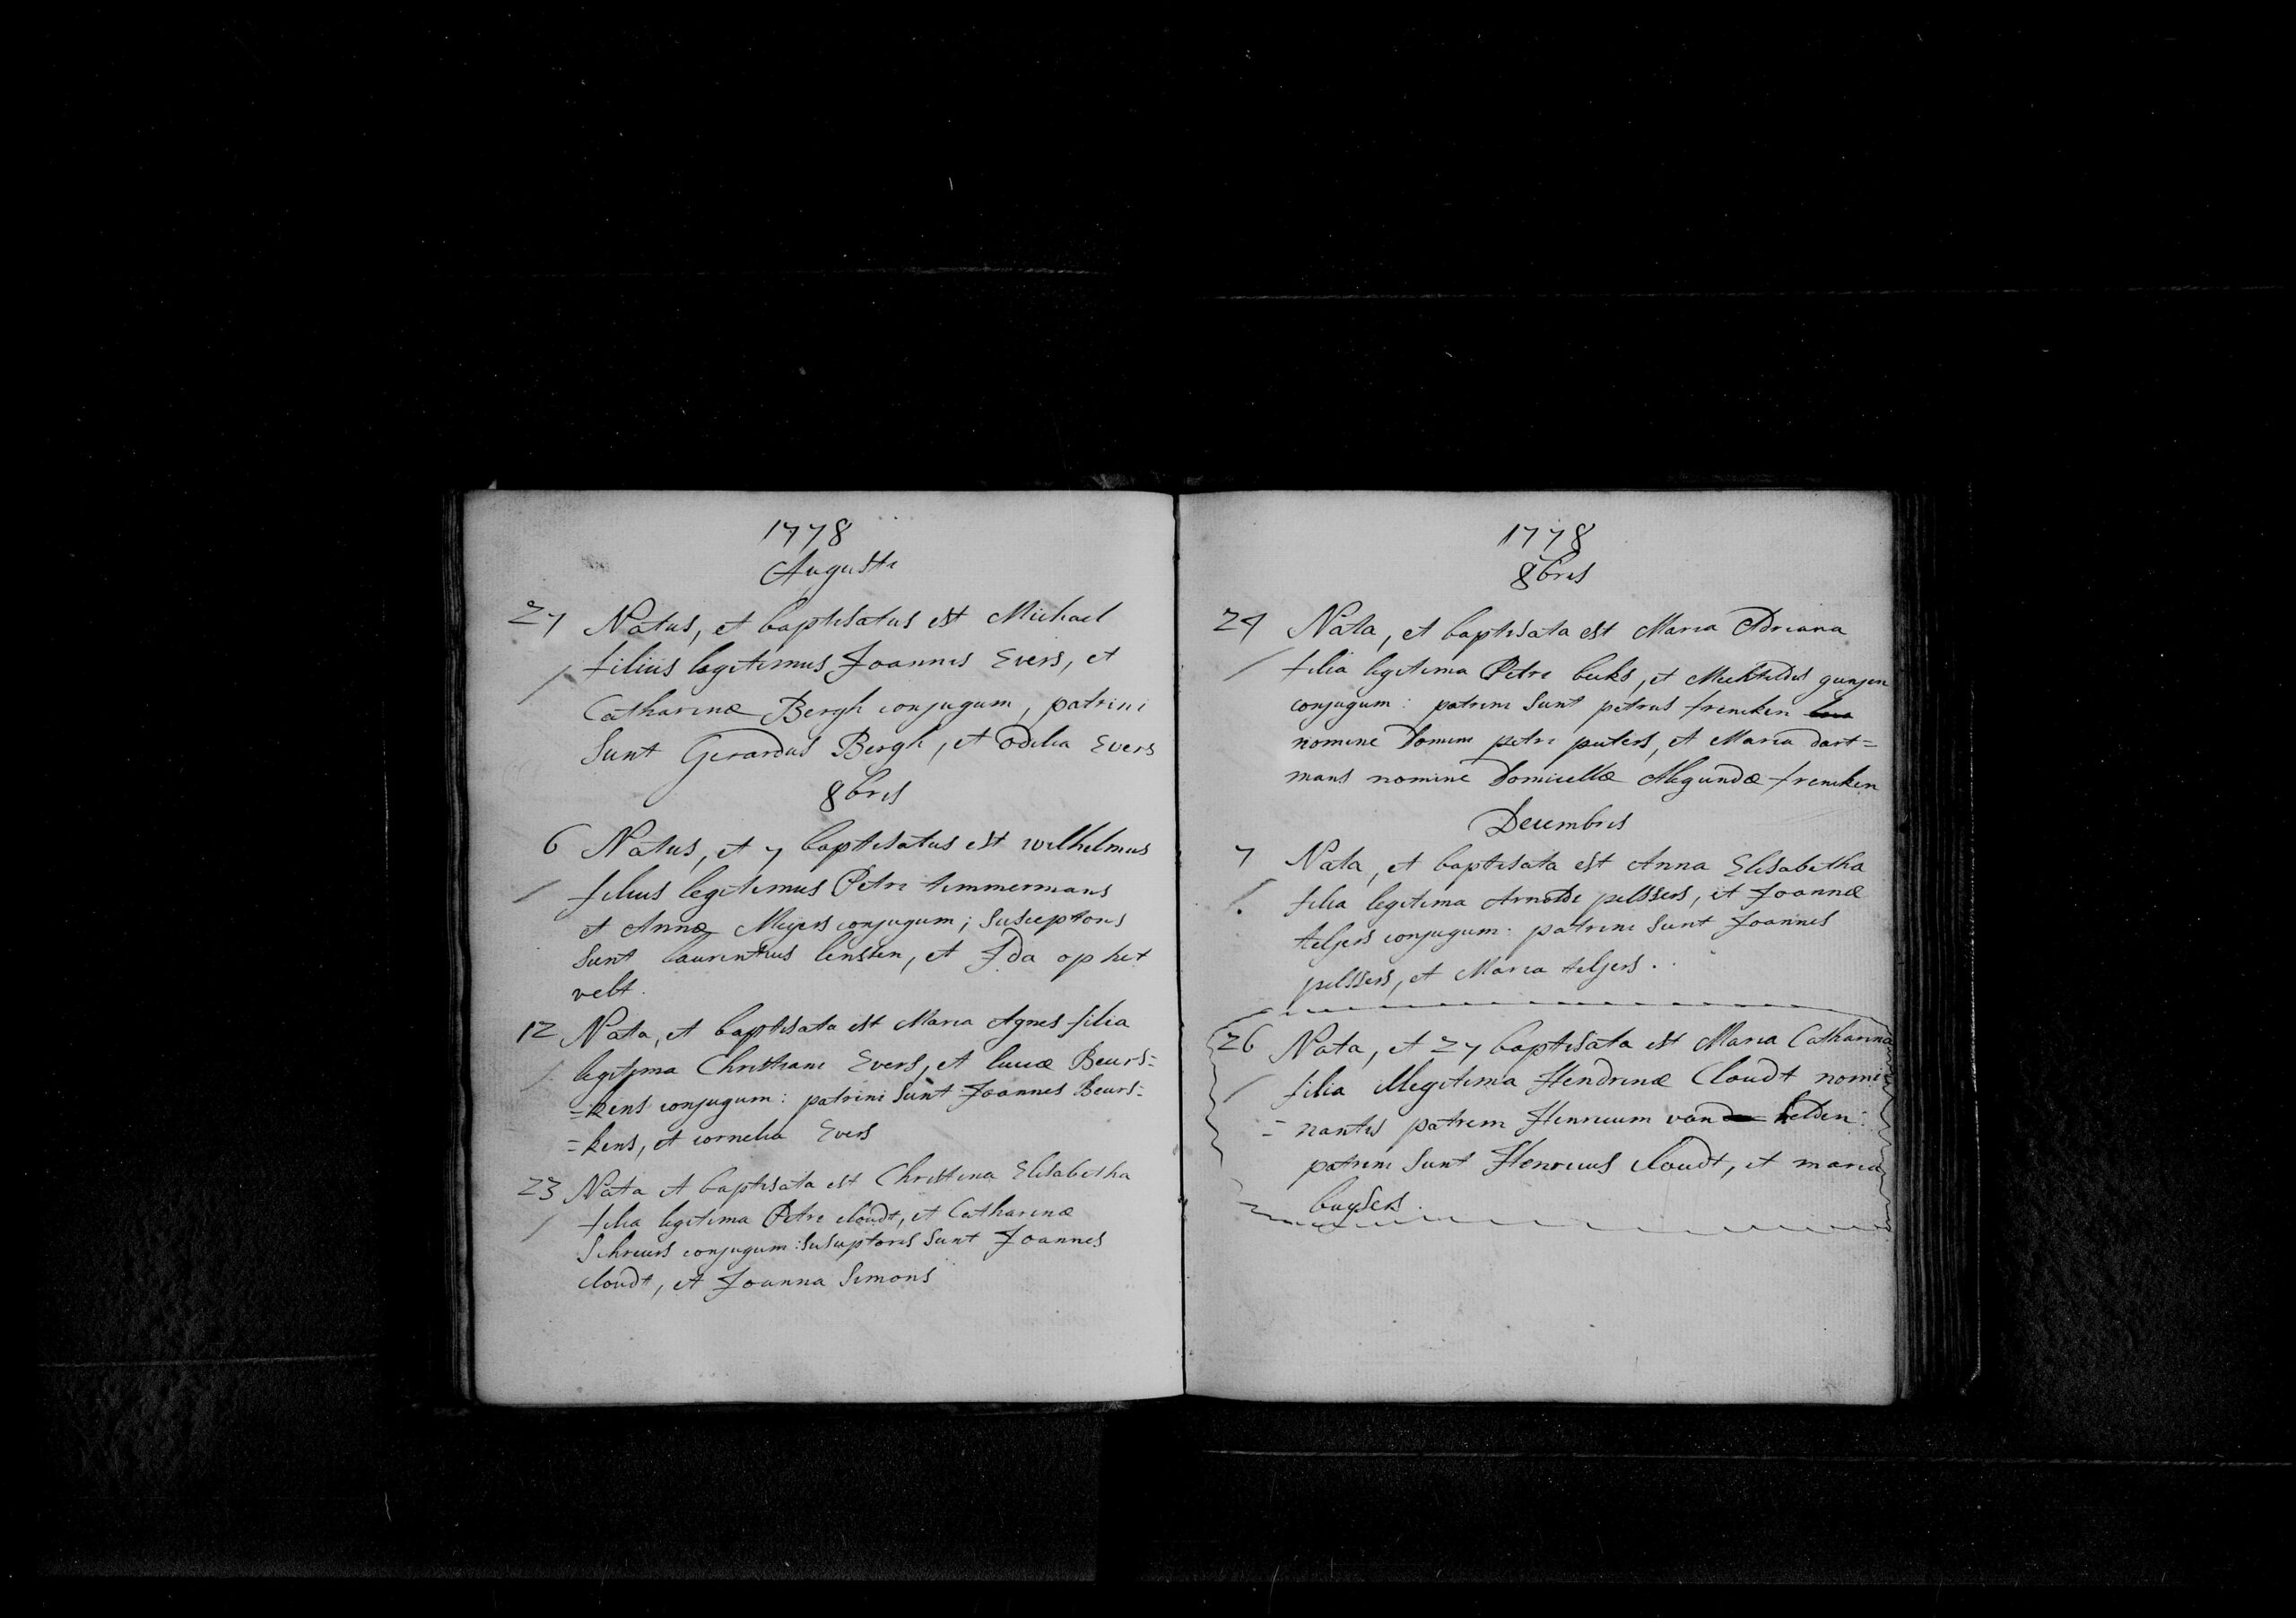 1778
Augusti
27 Natus, et baptisatus est Michael
filius legitimus Joannis Evers, et
Catharinæ Bergh conjugum, patrini
sunt Gerardus Bergh, et Odilia Evers
8bris
6 Natus, et 7 baptisatus est wilhelmus
filius legitimus Petri timmermans
et Annæ Meyers conjugum; susceptores
sunt laurentius lensen, et Ida op het
velt.
12 Nata, et baptisata est Maria Agnes filia
legitima Christiani Evers, et luciæ Beurs=
=kens conjugum: patrini sunt Joannes Beurs=
=kens, et cornelia Evers
23 Nata et baptisata est Christina Elisabetha
filia legitima Petri cloudt, et Catharinæ
Schreurs conjugum: susceptores sunt Joannes
cloudt, et Joanna Simons
1778
8bris
24 Nata, et baptisata est Maria Adriana
filia legitima Petri beeks, et Mechtildis
conjugum: patrini sunt petrus frencken
nomine Domini petri peeters, et Maria dort=
mans nomine Domicellæ Aldegundæ frencken
Decembris
7 Nata, et baptisata est Anna Elisabetha
filia legitima Arnoldi pelssers, et Joannæ
teljers conjugum: patrini sunt Joannes
pelssers, et Maria teljers.
26 Nata, et 27 baptisata est Maria Catharina
filia illegitima Hendrinæ Cloudt nomi
=nantis patrem Henricum van helden:
patrini sunt Henricus cloudt, et maria
buysers.